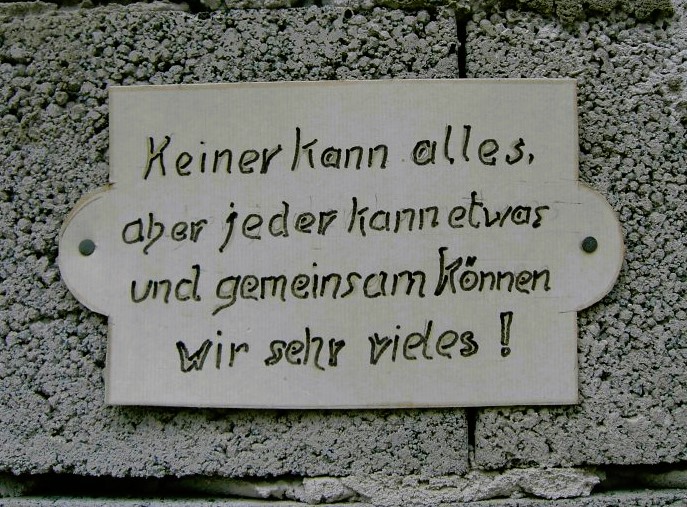 Keiner kann alles,
aber jeder kann etwas
und gemeinsam können
wir sehr vieles!